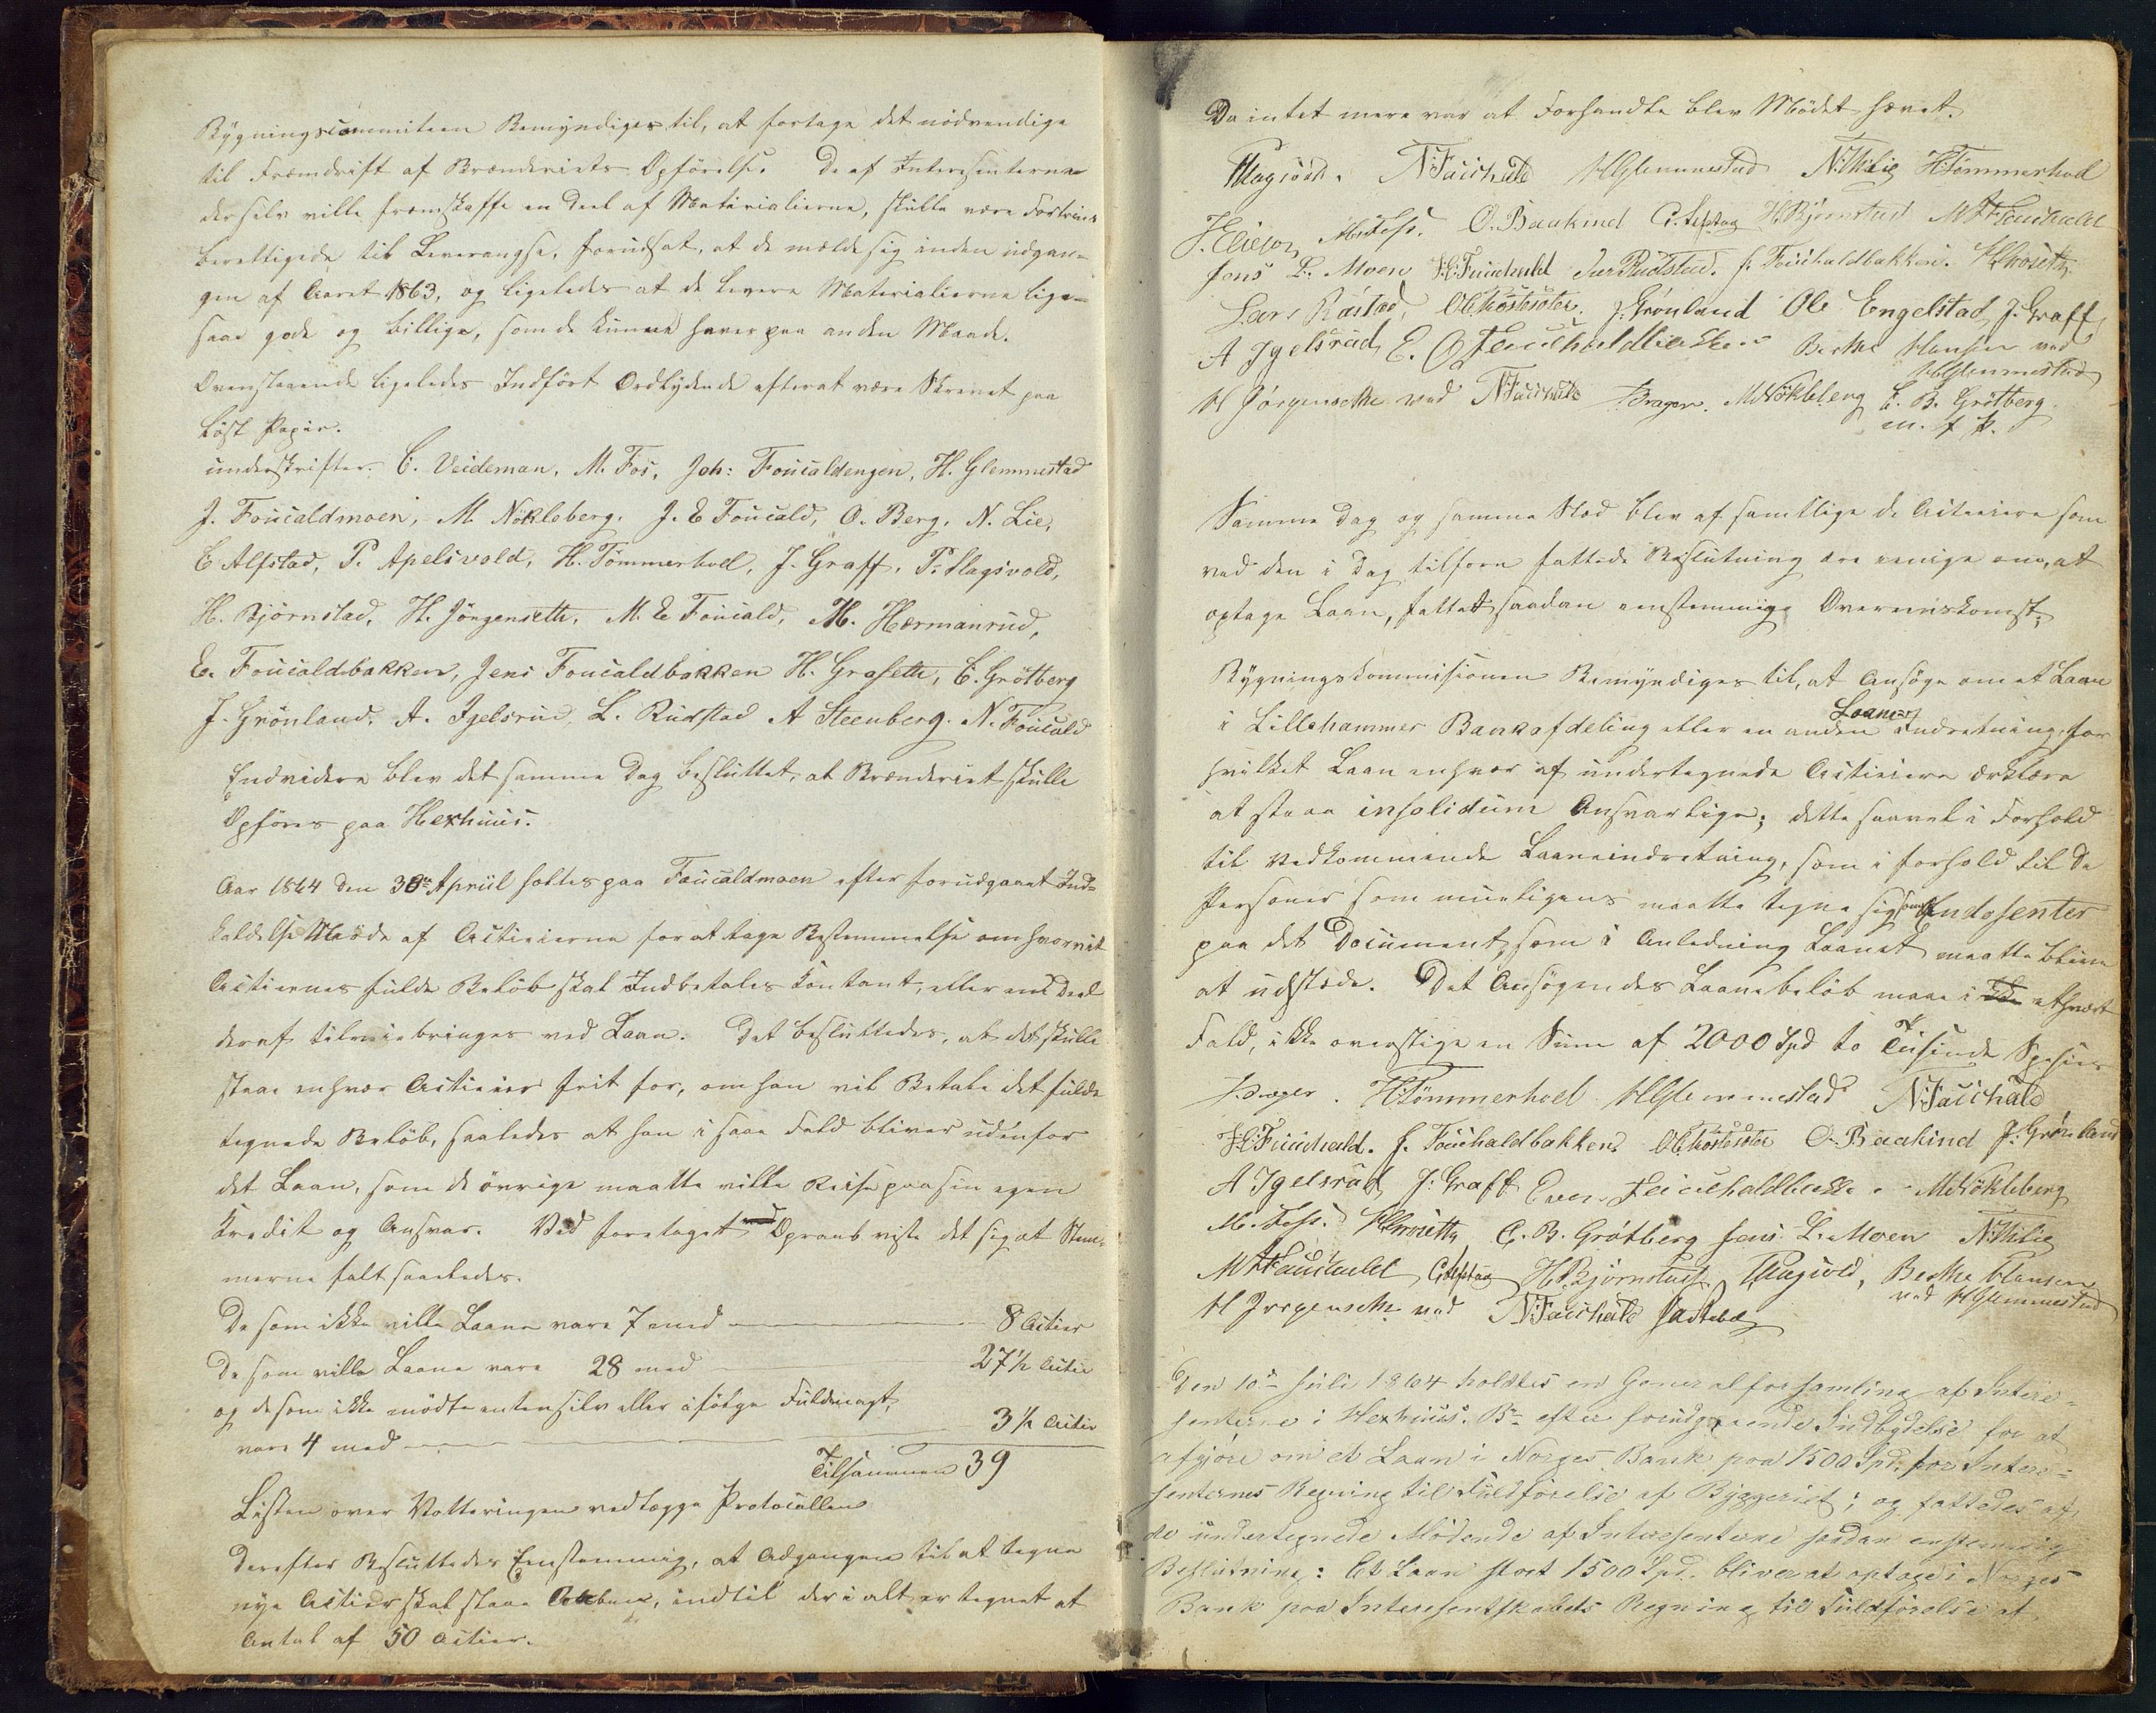 Bygningscommiteen Bemyndiges til, at fortage det nödvendige
til Fremdrift af Brænderiets Opförelse. De af Interesenterne
der selv ville fremskaffe en Deel af Materialierne, skulle være Fortrins
berettigede til Leverangse, forudsat, at de melde sig inden udgan-
gen af Aaret 1863, og ligeledes at de levere Materialierne lige-
saa gode og billige, som de kunne haves paa anden Maade.
Ovenstaaende ligeledes Indfört Ordlydende efter at være Skrevet paa
löst Papir.
underskrifter. C. Veideman, M. Fos, Joh: Foücaldengen, H. Glemmestad
J. Foücaldmoen, M. Nökleberg, J. E Foücald, O. Berg, N. Lie,
C Alfstad, P. Apelsvold, H. Tömmerhoel, J. Graff, P. Slagsvold,
H. Björnstad, H. Jörgenseth, M. E Foücald, M. Hermanrud,
E. Foücaldbakken, Jens Foucaldbakken H. Graseth, C. Grötberg
J. Grönland, A. Igelsrud, L. Rudstad A Steenberg. N. Foücald
Endvidere blev det samme Dag besluttet, at Brænderiet skulle
Opföres paa Hexhuus.
Aar 1864 den 30te April holdtes paa Faücaldmoen efter forudgaaet Ind-
kaldelse Möde af Actieierne for at tage Bestemmelse om hvorvit
Actiernes fulde Belöb skal Indbetales kontant, eller en Deel
deraf tilveiebringes ved Laan. Det besluttedes, at det skulle
staae enhver Actieier frit for, om han vil Betale det fulde
tegnede Belöb, saaledes at han i saa Fald bliver udenfor
det Laan, som de övrige maatte ville Reise paa sin egen
Kredit og Ansvar. Ved foretaget Opraab viste det sig at Stem-
merne falt saaledes.
De som ikke ville Laane vare 7 med 8 Actier
De som ville Laane vare 28 med 27½ Actie
og de som ikke mödte enten selv eller ifölge Fuldmagt,
vare 4 med 3½ Actie
Tilsammen 39
Listen over Votteringen vedlegges Protocollen
Derefter Besluttedes Eenstemmig, at Adgangen til at tegne
nye Actier skal staae Aaben, indtil der i alt er tegnet et
Antal af 50 Actier.
Da intet mere var at Forhandle blev Mödet hævet.
PSlagsvold. N.Fauchald HGlemmestad N. Mlie HTömmerhoel
M. Foss. O. Baakind C. Alfstad H Björnstad M Fauchald
Jens L. Moen H. Fauchald Iver Rudstad. J. Fouchaldbakken.
Lars Røstad, J. Grönland Ole Engelstad, J. Graff
A Igelsrud, E. Berthe Hansen ved
HGlemmestad
H Jörgenseth ved N Fauchald Brager. M Nökleberg C. B. Grötberg
m. f. P.
Samme Dag og samme Sted blev af samtlige de Actieiere som
ved den i Dag tilforn fattede Beslutning ere enige om, at
optage Laan, fattet saadan eenstemmige Overeenskomst;
Bygningskommisionen Bemyndiges til, at Ansöge om et Laan
i Lillehammer Bankafdeling eller en anden Laane Indretning, for
hvilket Laan enhver af undertegnede Actieiere erklære
at staae insolidum Ansvarlige; dette saavel i Forhold
til Vedkommende Laaneindretning, som i forhold til De
Personer som mueligens maatte tegne sig som Endosenter
paa det Document, som i Anledning Laanet maatte blive
at udstæde. Det Ansögendes Laanebelöb maae i ethvert
Fald, ikke overstige en Sum af 2000 Spd to Tusinde Spesier
Brager. H.Tömmerhoel HGlemmestad N.Fauchald
H. Fauchald. J. Fouchaldbakken O. Baakind J. Grönland
A Igelsrud J. Graff Even M Nökleberg
M. Foss. C. B. Grötberg Jens L. Moen N. Mlie
M Fauchald C Alfstad H Björnstad, PSlagsvold, Berthe Hansen
ved HGlemmestad
H Jörgenseth ved N. Fauchald
Den 10de Juli 1864 holdtes en Generalforsamling af Intere-
senterne i Hexhuus Brr. efter forudgaaende Indbydelse for at
afgjöre om et Laan i Norges Bank paa 1500 Spd. for Intere-
senternes Regning til Fuldförelse af Byggeriet; og fattedes af
de undertegnede Mödende af Interesenterne saadan enstemmig
Beslutning: Et Laan stort 1500 Spd. bliver at optage i Norges
Bank paa Interesentskabets Regning til Fuldförelse af